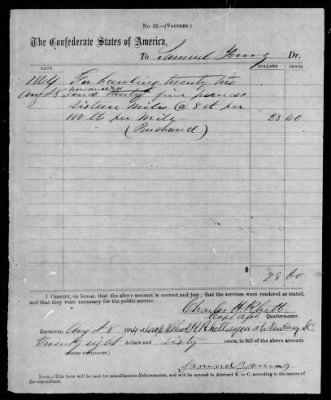 No. 22.—(VOUCHER.)
The Confederate States of America,
To Samuel Young Dr.
DATE. DOLLARS CENTS
1864 For hauling twenty two
Aug 8 hundred and thirty five pounds
sixteen miles @ 8 ct per
100 lb per mile 28 60
$ 28 60.
I CERTIFY, on honor, that the above account is correct and just; that the services were rendered as stated, and that they were necessary for the public service.
Charles H.
Capt Quartermaster.
RECEIVED Aug 8 1864 of Capt
twenty eight dollars and sixty cents, in full of the above account.
(SIGNED DUPLICATES.)
Samuel Young
NOTE.—This form will be used for miscellaneous disbursements, and will be entered in Abstract B. or C. according to the nature of the expenditure.